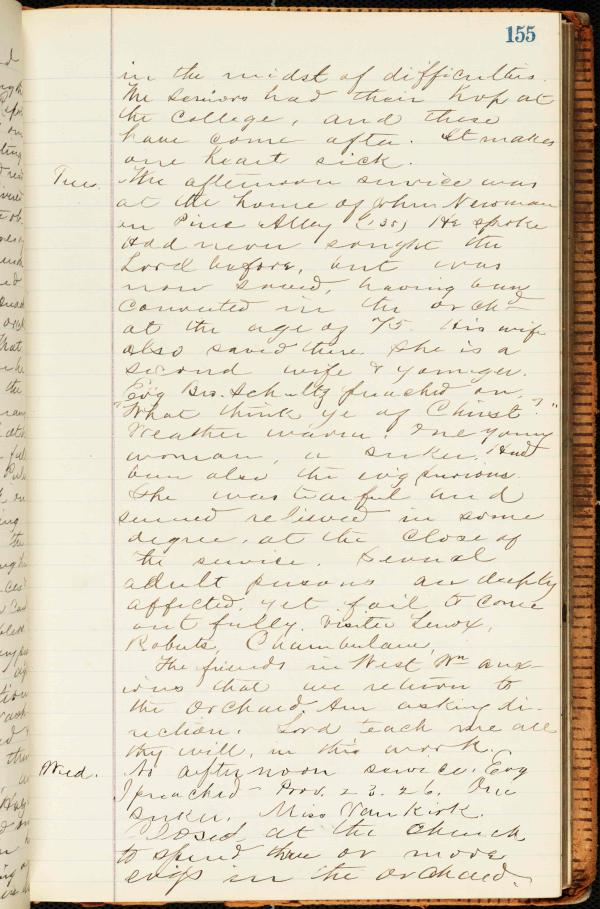 155
in the midst of difficulties.
The Seniors had their hop at
the College, and these
have come after. It makes
one heart sick.
Tues. The afternoon service was
at the home of John Newman
in Pine Alley (135) He spoke
Had never sought the
Lord before, but was
now saved, having been
converted in the orchd
at the age of 75. His wife
also saved there. She is a
second wife & younger.
Evg Bro. Schultz preached on,
"What think ye of Christ?"
Weather warm. One young
woman, a seker. Had
been also the evg previous.
She was tearful and
seemed relieved in some
degree, at the close of
the service. Several
adult persons are deeply
affected, yet fail to come
out fully. Visited Lenox,
Roberts, Chamberlain,
The friends in West Wn anx-
ious that we return to
the Orchard. Am asking di-
rection. Lord teach me all
thy will, in this work.
Wed. No afternoon service. Evg
I preached - Prov. 23.26. One
seker. Miss Van Kirk.
Closed at the church
to spend three or more
evgs in the orchard.